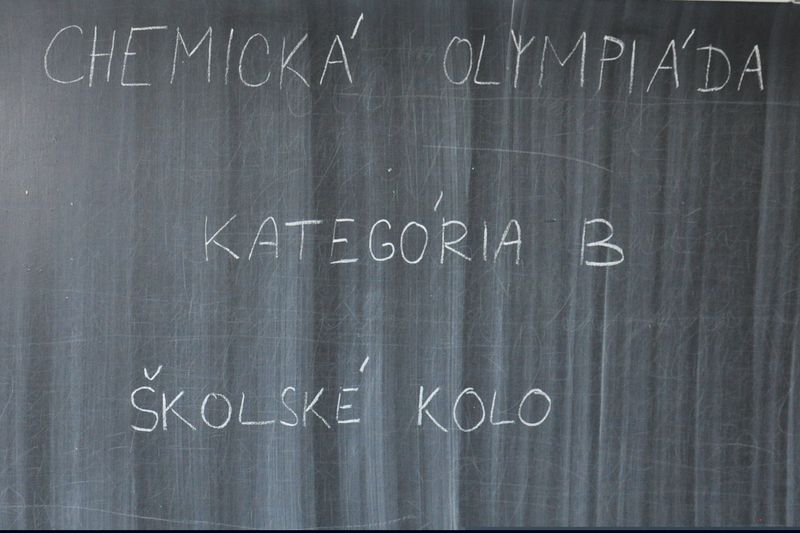 CHEMICKÁ OLYMPIÁDA
KATEGÓRIA B
ŠKOLSKÉ KOLO